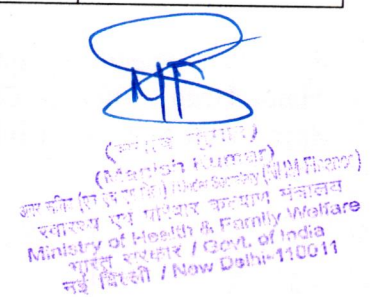 (Manish Kumar)
Under Secretary (NHM Finance)
स्वास्थ्य एवं परिवार कल्याण मंत्रालय
Ministry of Health & Family Welfare
भारत सरकार / Govt. of India
नई दिल्ली / New Delhi-110011